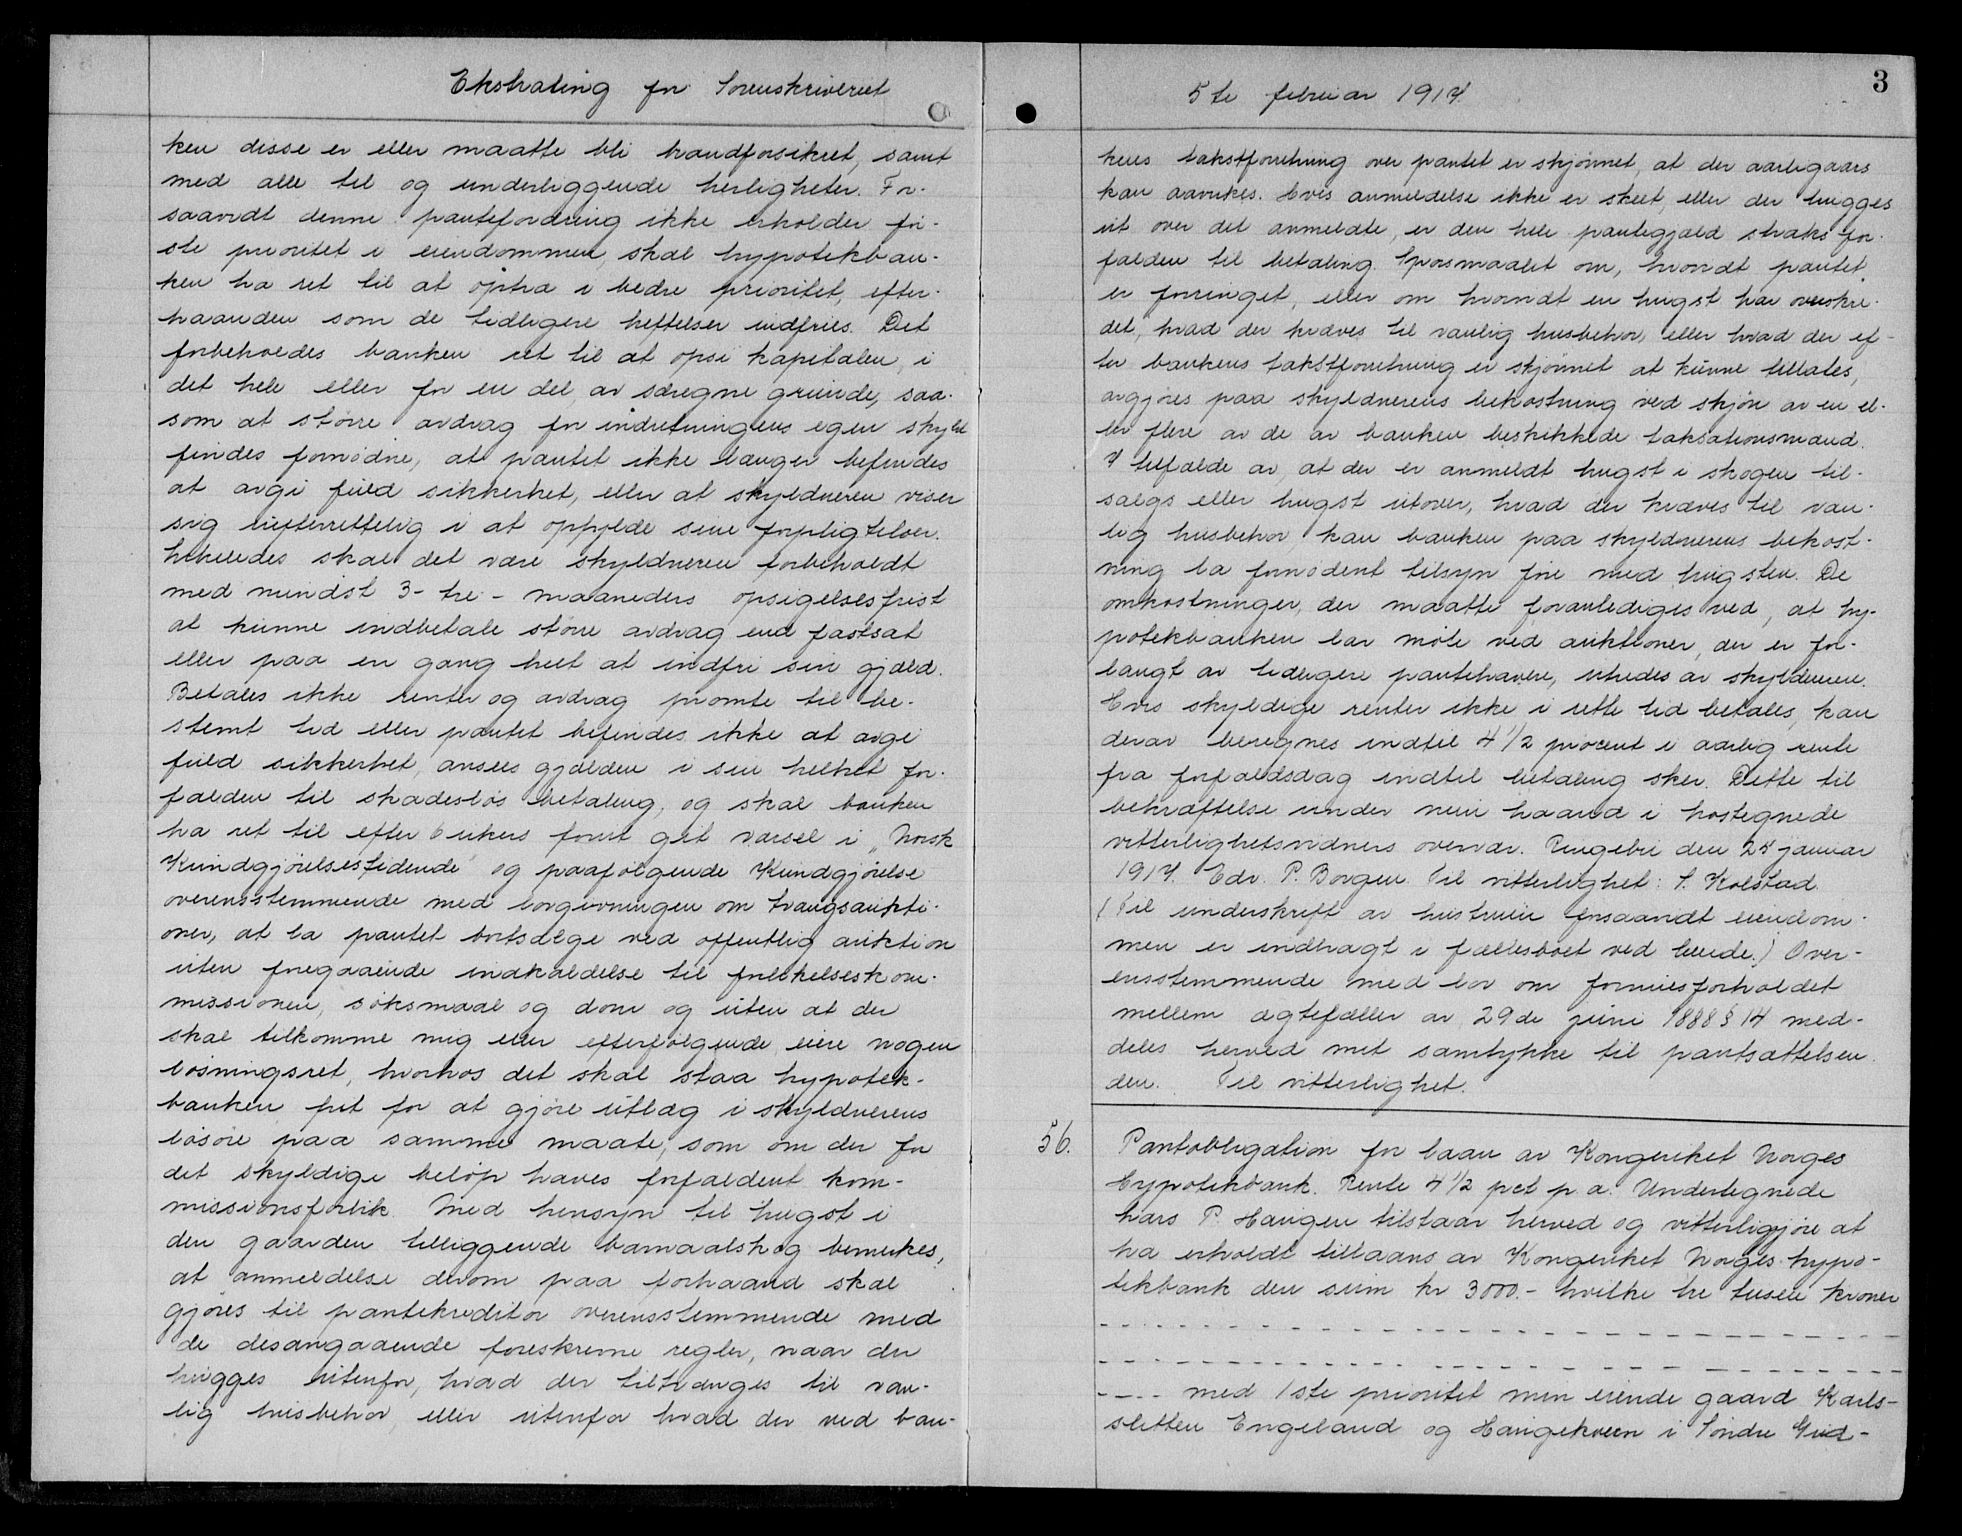 Ekstrating for Sorenskriveriet
ken disse er eller maatte bli brandforsikret, samt
med alle til og underliggende herligheter. For-
saavidt denne pantefordring ikke erholder før-
ste prioritet i eiendommen, skal hypotekban-
ken ha ret til at optræ i bedre prioritet, efter-
haanden som de tidligere heftelser indfries. Det
forbeholdes banken ret til at opsi kapitalen, i
det hele eller for en del, av særegne grunde, saa-
som at større avdrag for indretningens egen skyld
findes fornødne, at pantet ikke længer befindes
at avgi fuld sikkerhet, eller at skyldneren viser
sig uefterrettelig i at opfylde sine forpligtelser.
Likeledes skal det være skyldneren forbeholdt
med mindst 3- tre - maaneders opsigelsesfrist
at kunne indbetale større avdrag end fastsat
eller paa en gang helt at indfri sin gjæld.
Betales ikke renter og avdrag promte til be-
stemt tid eller pantet befindes ikke at avgi
fuld sikkerhet, ansees gjælden i sin helhet for-
falden til skadesløs betaling, og skal banken
ha ret til efter 6 ukers forut git varsel i „Norsk
Kundgjørelsestidende" og paafølgende Kundgjørelse
overensstemmende med lovgivningen om tvangsaukti-
oner, at la pantet bortsælge ved offentlig auktion
uten foregaaende indkaldelse til forlikelseskom-
missionen, søksmaal og dom og uten at der
skal tilkomme mig eller efterfølgende eiere nogen
løsningsret, hvorhos det skal staa hypotek-
banken frit for at gjøre utlæg i skyldnerens
løsøre paa samme maate, som om der for
det skyldige beløp haves forfaldent kom-
missionsforlik. Med hensyn til hugst i
den gaarden tilliggende barnaalskog bemerkes,
at anmeldelse derom paa forhaand skal
gjøres til pantekreditor overensstemmende med
de desangaaende foreskrevne regler, naar der
hugges utenfor, hvad der tiltrænges til van-
lig husbehov, eller utenfor hvad der ved ban-
5te februar 1917.
3
kens takstforretning over pantet er skjønnet, at der aarligaars
kan aavirkes. Hvis anmeldelse ikke er skeet, eller der hugges
ut over det anmeldte, er den hele pantegjæld straks for-
falden til betaling. Spørsmaalet om, hvorvidt pantet
er forringet, eller om hvorvidt en hugst har overskre-
det, hvad der kræves til vanlig husbehov, eller hvad der ef-
ter bankens takstforretning er skjønnet at kunne tillates,
avgjøres paa skyldnerens bekostning ved skjøn av en el-
ler flere av de av banken beskikkede taksationsmænd.
I tilfælde av, at der er anmeldt hugst i skogen til-
salgs eller hugst utover, hvad der kræves til van-
lig husbehov kan banken paa skyldnerens bekost-
ning la fornødent tilsyn føre med hugsten. De
omkostninger, der maatte foranlediges ved, at hy-
potekbanken lar møte ved auktioner, der er for-
langt av tidligere pantehavere, utredes av skyldneren.
Hvis skyldige renter ikke i rette tid betales, kan
derav beregnes indtil 4 1/2 procent i aarlig rente
fra forfaldsdag indtil betaling sker. Dette til
bekræftelse under min haand i hostegnede
vitterlighetsvidners overvær. Ringebu den 24 januar
1917. Edv. P. Borgen. Til vitterlighet: S. Kolstad
(Til underskrift av hustruen forsaavidt eiendom-
men er indbragt i fællesboet ved hende.) Over-
ensstemmende med lov om formuesforholdet
mellem ægtefæller av 29de juni 1888 § 14 med-
deles herved mit samtykke til pantsættelsen
den. Til vitterlighet.
56. Pantobligation for laan av Kongeriket Norges
Hypotekbank. Rente 4 1/2 pct p. a. Undertegnede
hans P. Haugen tilstaar herved og vitterliggjøre at
ha erholdt tillaans av Kongeriket Norges hypo-
tekbank den sum kr 3000.- hvilke tre tusen kroner
- - - - med 1ste prioritet min eiende gaard Karls-
sletten Engeland og Haugekveen i Søndre Gud-